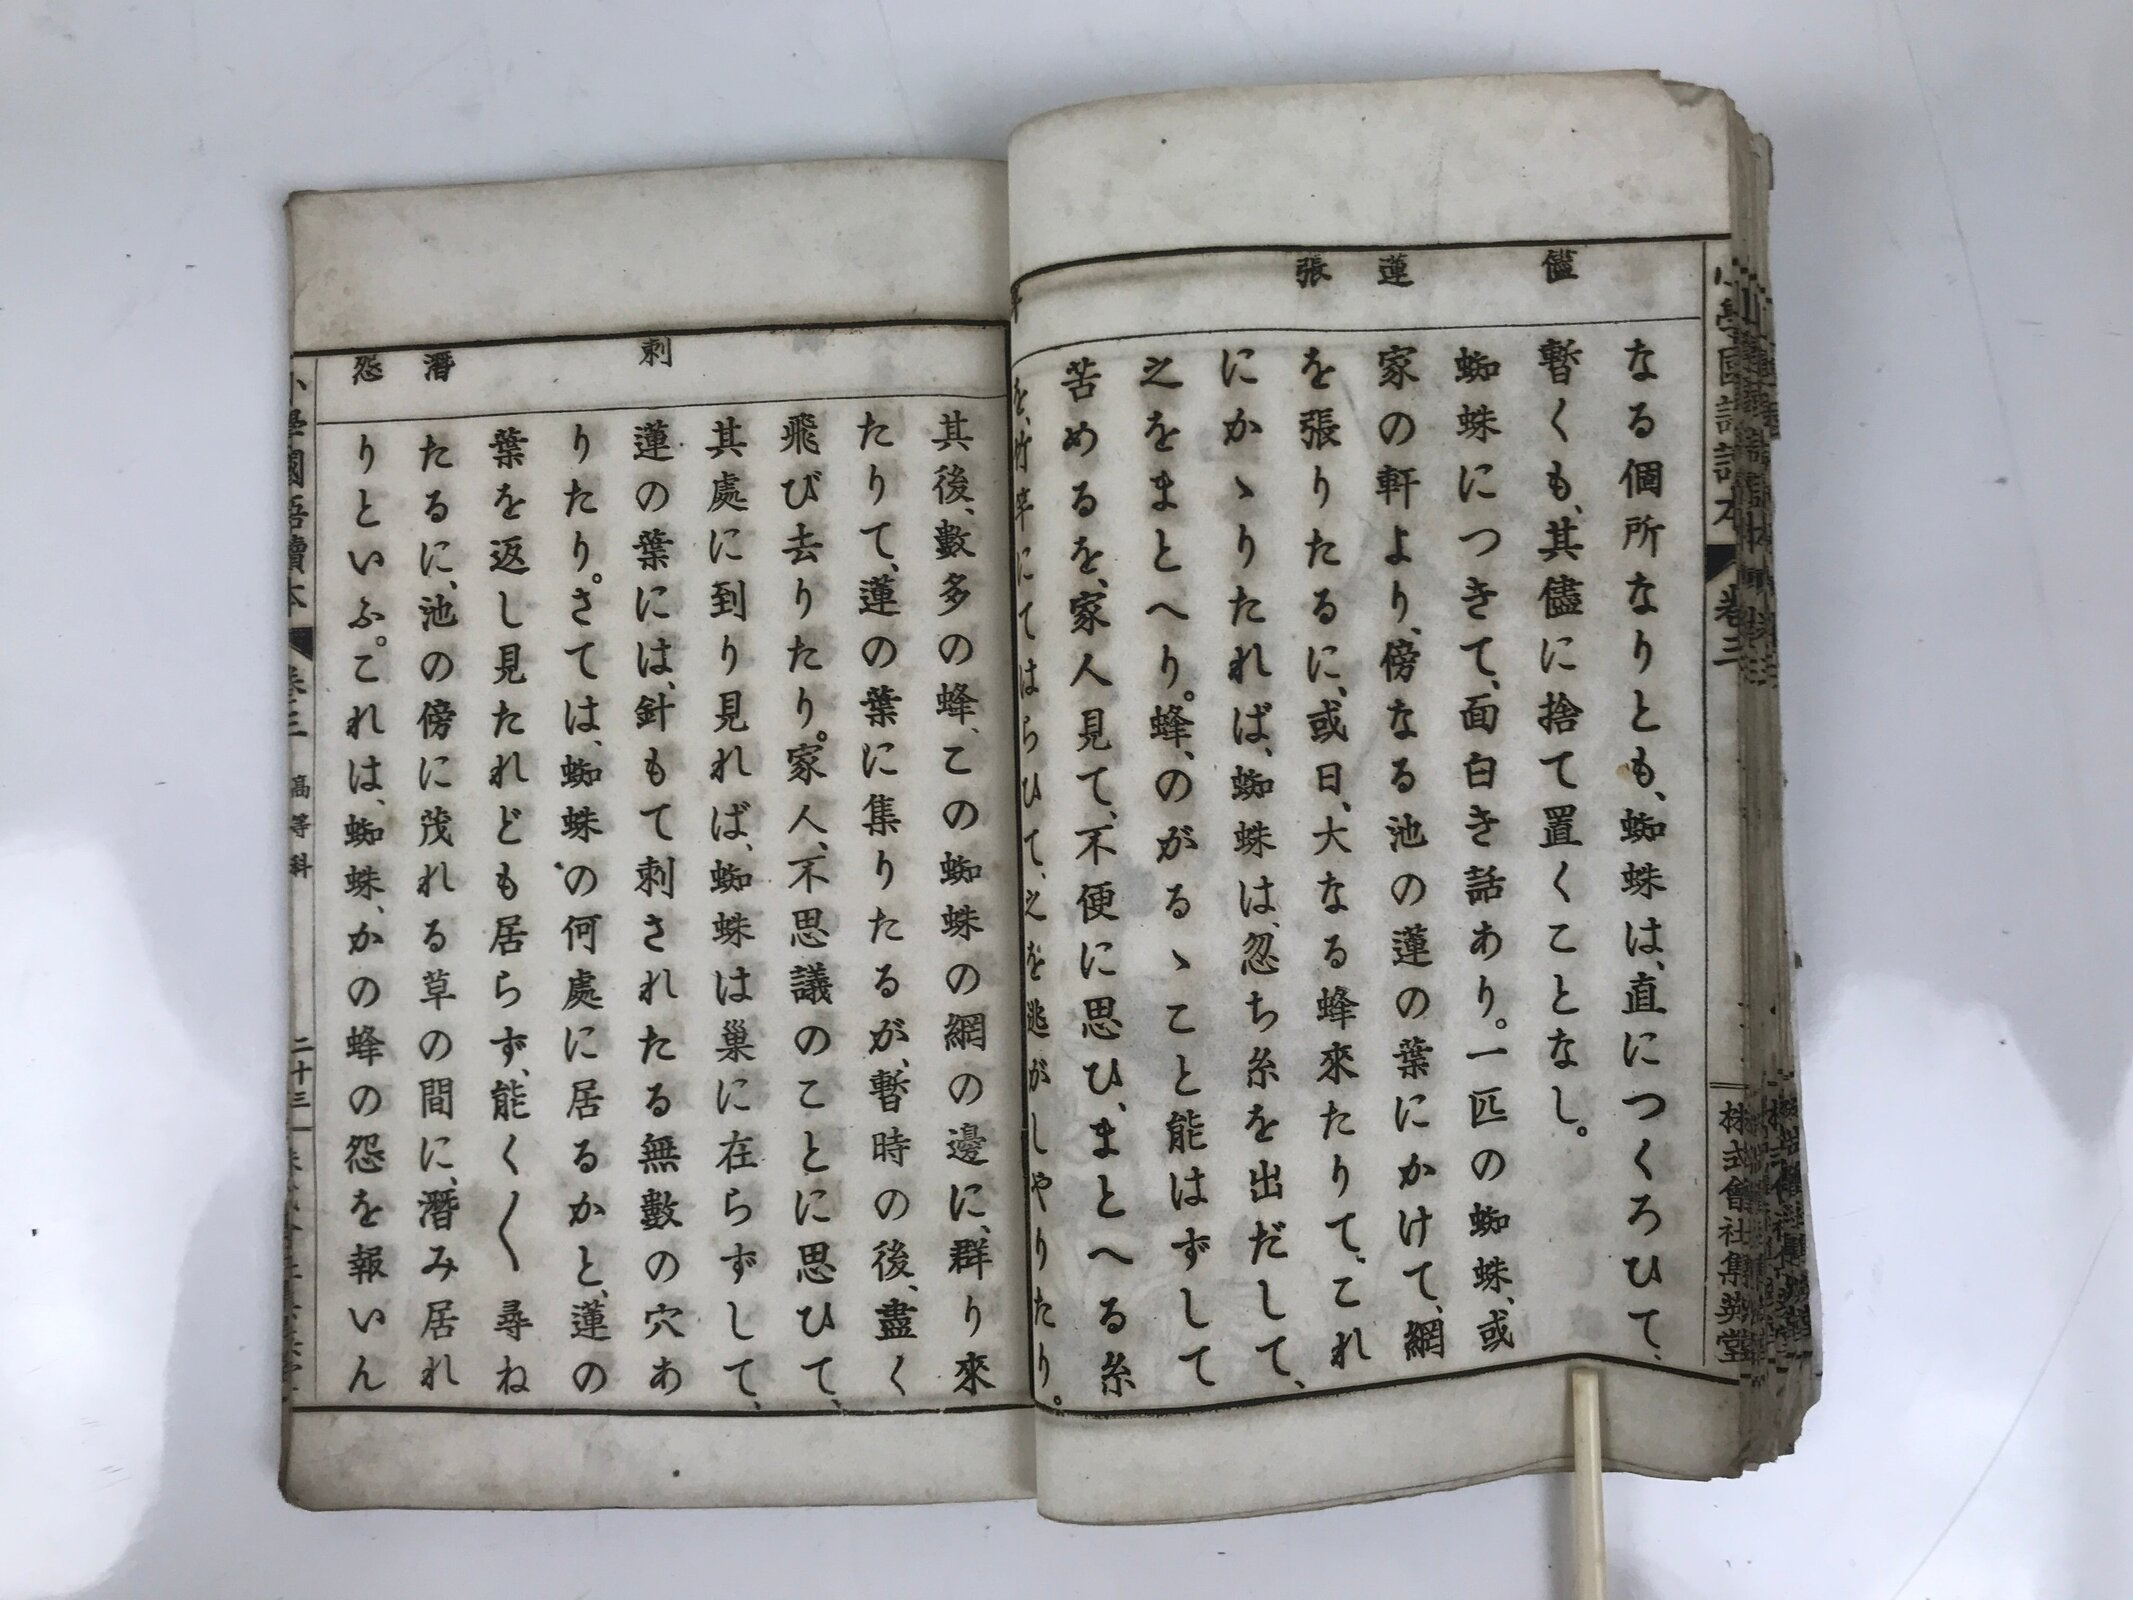 小學國語讀本 卷三
株式會社集英堂
儘
蓮
張
なる個所なりとも、蜘蛛は、直につくろひて、
暫くも、其儘に捨て置くことなし。
蜘蛛につきて、面白き話あり。一匹の蜘蛛、或
家の軒より、傍なる池の蓮の葉にかけて、網
を張りたるに、或日、大なる蜂來たりて、これ
にかゝりたれば、蜘蛛は、忽ち糸を出だして、
之をまとへり。蜂、のがるゝこと能はずして
苦めるを、家人見て、不便に思ひ、まとへる糸
を、竹竿にてはらひて、之を逃がしやりたり。
刺
潛
怨
其後、數多の蜂、この蜘蛛の網の邊に、群り來
たりて、蓮の葉に集りたるが、暫時の後、盡く
飛び去りたり。家人、不思議のことに思ひて、
其處に到り見れば、蜘蛛は巢に在らずして、
蓮の葉には、針もて刺されたる無數の穴あ
りたり。さては、蜘蛛の何處に居るかと、蓮の
葉を返し見たれども居らず、能く〱尋ね
たるに、池の傍に茂れる草の間に、潛み居れ
りといふ。これは、蜘蛛、かの蜂の怨を報いん
小學國語讀本 卷三 高等科 二十三